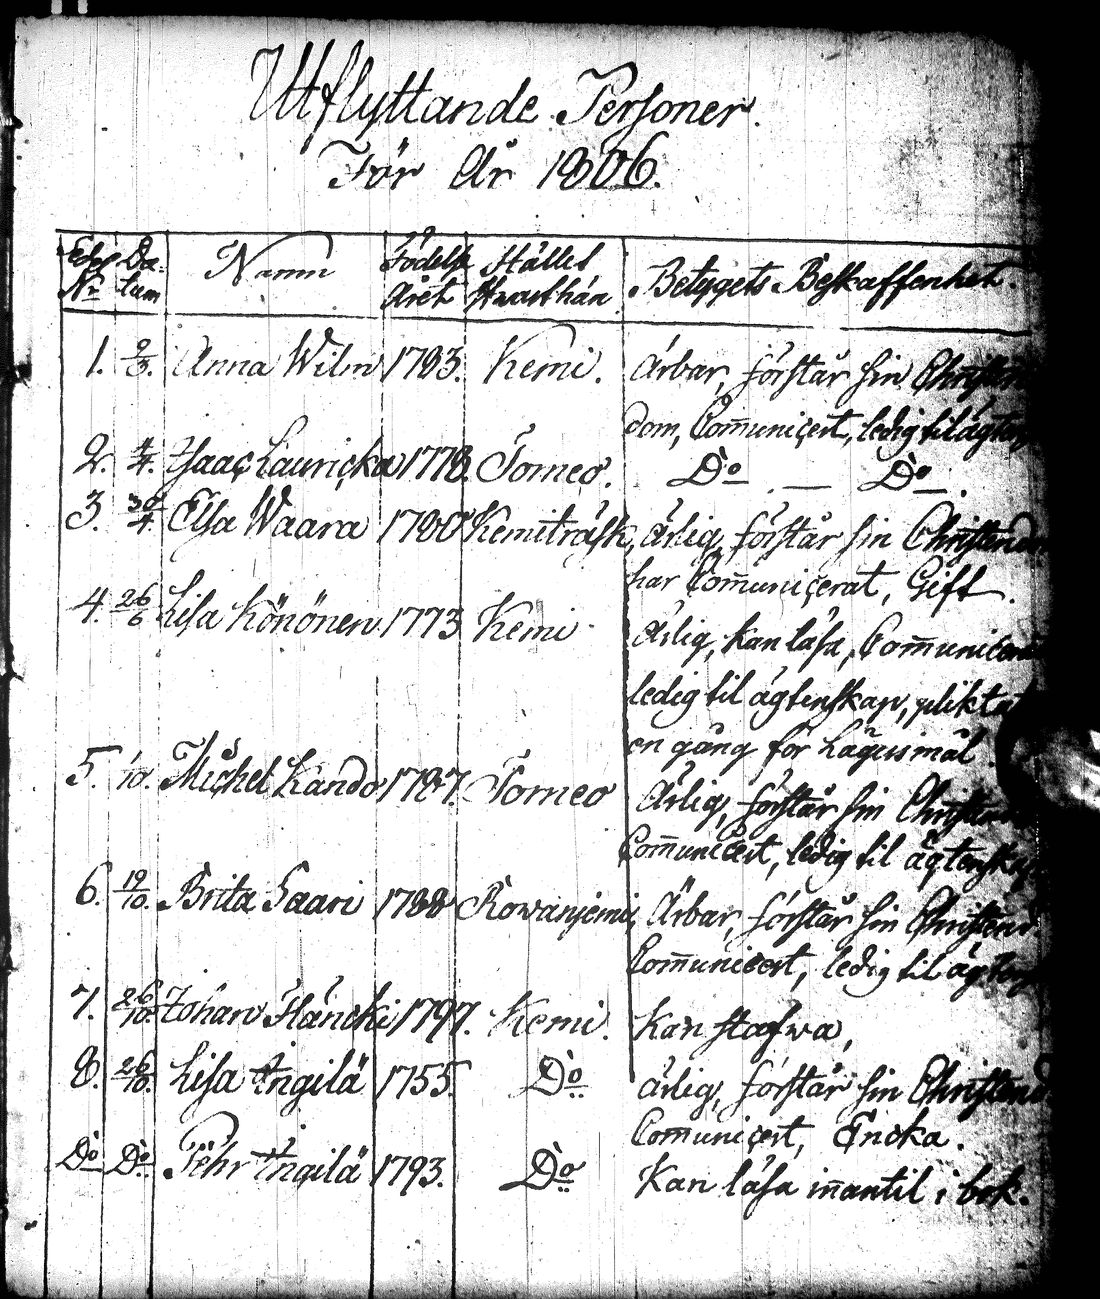 Utflyttande Personer.
För År 1806.
Da- Namn Födelse Stället Betygets Beskaffenhet.
No tum Året Hwarthän
1. 2/3. Anna Wilm 1783. Kemi. Ärbar, förstår sin Christen
dom, Com̅uniçert, ledig til ägten
2. 4/4. Ysaaç Lauriçka 1778. Torneo. Do — Do.
3. 30/4. Elsa Waara 1780 Kemiträsk, Ärlig, förstår sin Christend
har Com̅uniçerat, Gift.
4. 26/6 Lisa Könönen 1773 Kemi. Ärlig, kan läsa, Com̅unicerat
ledig til ägtenskap, pliktat
en gång för Lägersmål.
5. /10. Michel Lando 1787. Torneo Ärlig, förstår sin Christend
Com̅unicert, ledig til ägtenskap
6. 19/10. Brita Saari 1788 Rowanjemi, Ärbar, förstår sin Christend.
Com̅unicert, ledig til ägtensk
7. 26/10. Johan Häncki 1797. Kemi. Kan stafwa,
8. 26/10. Lisa Ängilä 1755. Do ärlig, förstår sin Christend
Com̅uniçert, Encka.
Do Do Pehr Ängilä 1793. Do Kan läsa in̅antil i bok.